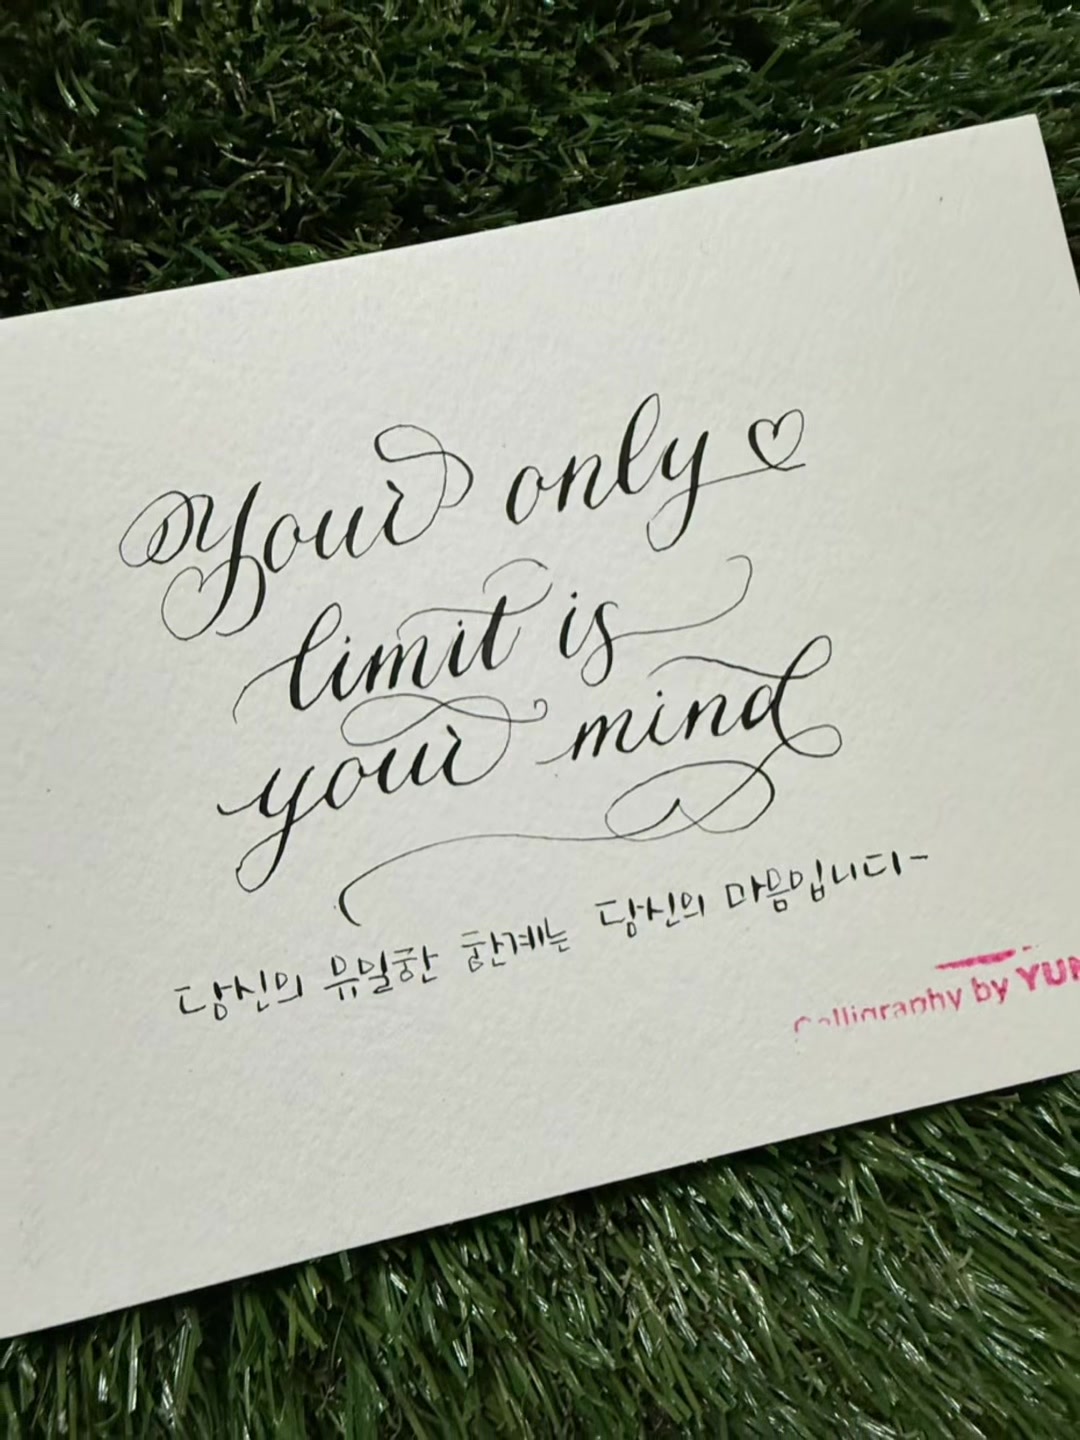 Your only
limit is
your mind
당신의 유일한 한계는 당신의 마음입니다~
Calligraphy by